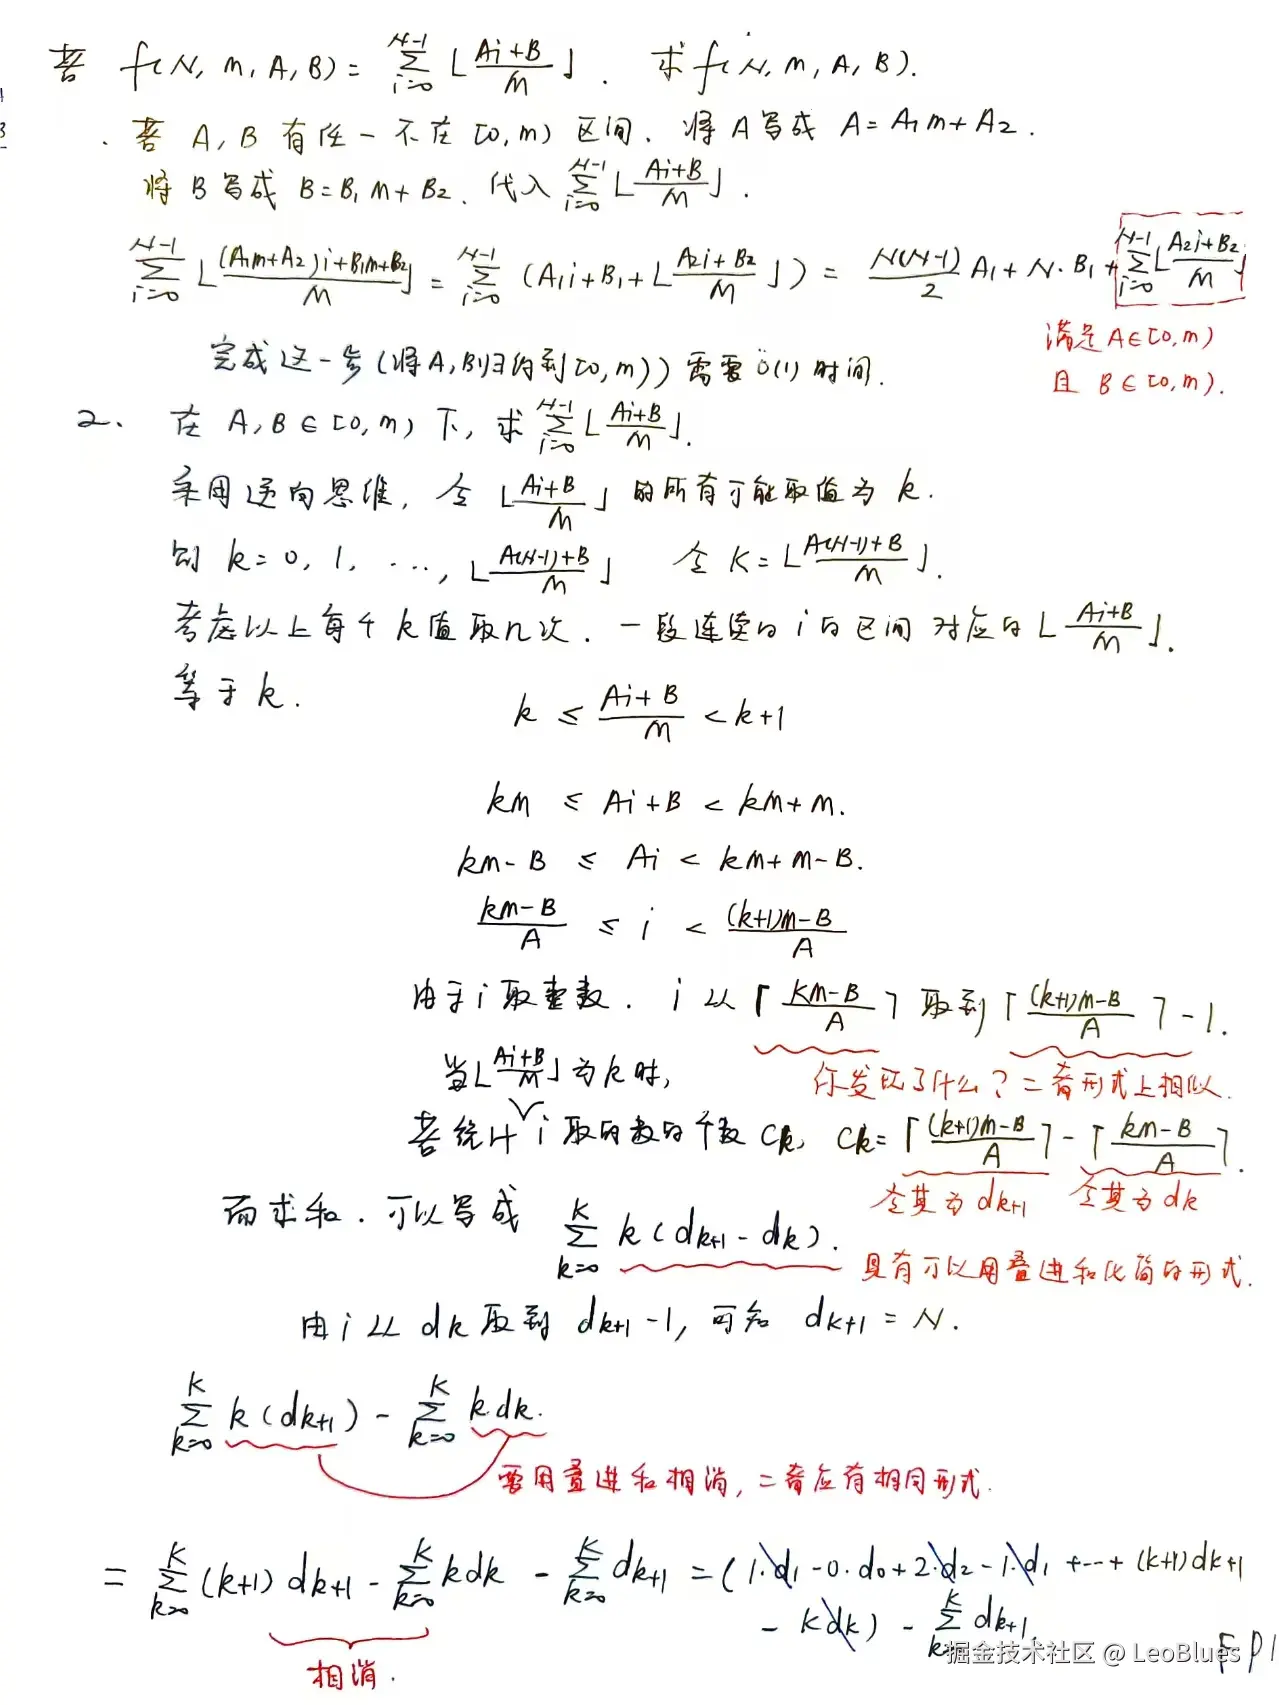 若 f(N, m, A, B) = \sum_{i=0}^{N-1} ⌊\frac{Ai+B}{m}⌋. 求 f(N, m, A, B).
若 A, B 有任一不在 [0, m) 区间. 将 A 写成 A = A₁m + A₂.
将 B 写成 B = B₁m + B₂. 代入 \sum_{i=0}^{N-1} ⌊\frac{Ai+B}{m}⌋.
\sum_{i=0}^{N-1} ⌊\frac{(A₁m+A₂)i+B₁m+B₂}{m}⌋ = \sum_{i=0}^{N-1} (A₁i + B₁ + ⌊\frac{A₂i+B₂}{m}⌋) = \frac{N(N-1)}{2} A₁ + N·B₁ + \sum_{i=0}^{N-1} ⌊\frac{A₂i+B₂}{m}⌋
满足 A∈[0, m)
且 B∈[0, m).
完成这一步 (将A, B归约到[0, m)) 需要 O(1) 时间.
2. 在 A, B ∈ [0, m) 下, 求 \sum_{i=0}^{N-1} ⌊\frac{Ai+B}{m}⌋.
采用逆向思维, 令 ⌊\frac{Ai+B}{m}⌋ 的所有可能取值为 k.
则 k = 0, 1, ..., ⌊\frac{A(N-1)+B}{m}⌋ 令 K = ⌊\frac{A(N-1)+B}{m}⌋.
考虑以上每个 k 值取几次. 一段连续的 i 的区间对应的 ⌊\frac{Ai+B}{m}⌋.
等于 k.
k ≤ \frac{Ai+B}{m} < k+1
km ≤ Ai+B < km+m.
km-B ≤ Ai < km+m-B.
\frac{km-B}{A} ≤ i < \frac{(k+1)m-B}{A}
由于 i 取整数. i 从 ⌈\frac{km-B}{A}⌉ 取到 ⌈\frac{(k+1)m-B}{A}⌉ - 1.
你发现了什么? 二者形式上相似.
当⌊\frac{Ai+B}{m}⌋为k时,
若统计 i 取的数的个数 Ck, Ck = ⌈\frac{(k+1)m-B}{A}⌉ - ⌈\frac{km-B}{A}⌉.
令其为 dk+1 令其为 dk
而求和. 可以写成 \sum_{k=0}^{K} k(dk+1 - dk).
具有可以用叠进和化简的形式.
由 i 从 dk 取到 dk+1 -1, 可知 dk+1 = N.
\sum_{k=0}^{K} k(dk+1) - \sum_{k=0}^{K} k·dk.
要用叠进和相消, 二者应有相同形式.
= \sum_{k=0}^{K} (k+1) dk+1 - \sum_{k=0}^{K} kdk - \sum_{k=0}^{K} dk+1 = (1·d₁ - 0·d₀ + 2·d₂ - 1·d₁ + ··· + (k+1)dk+1
- kdk) - \sum_{k=0}^{K} dk+1.
相消.
掘金技术社区 @ LeoBlues